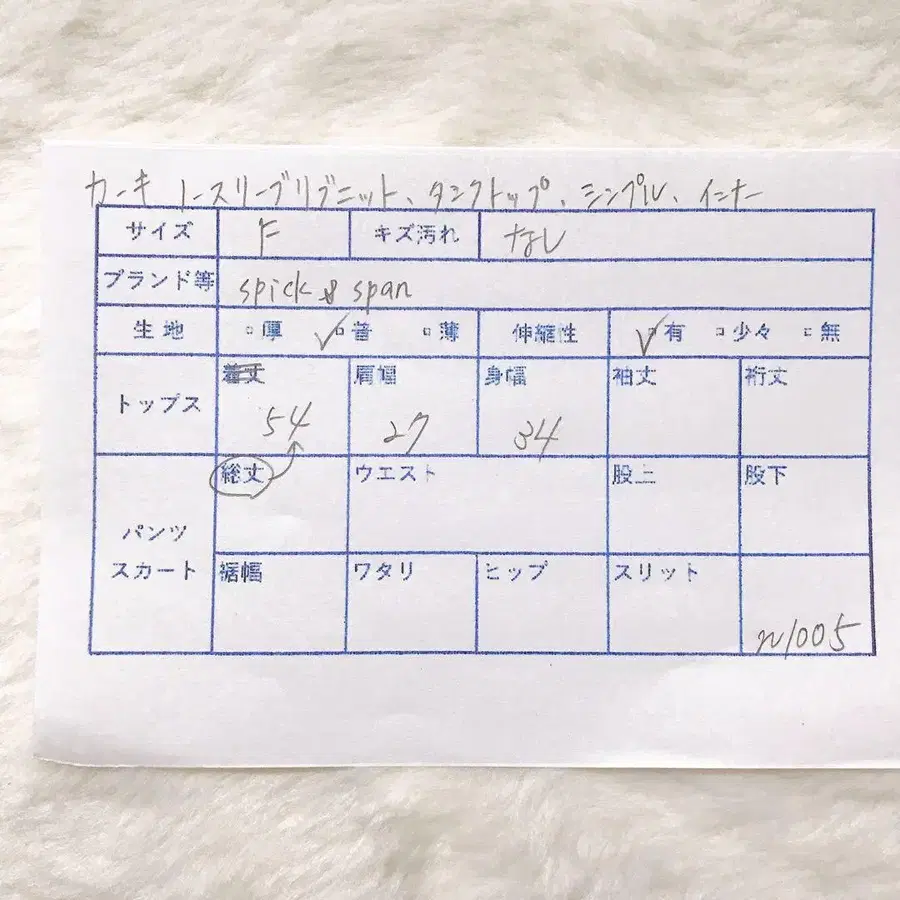 カーキ ノースリーブリブニット、タンクトップ、シンプル、インナー
サイズ F キズ汚れ なし
ブランド等 spick & span
生地 厚 普 薄 伸縮性 有 少々 無
トップス 着丈 肩幅 身幅 袖丈 裄丈
54 27 34
パンツ スカート 総丈 ウエスト 股上 股下
裾幅 ワタリ ヒップ スリット
n1005